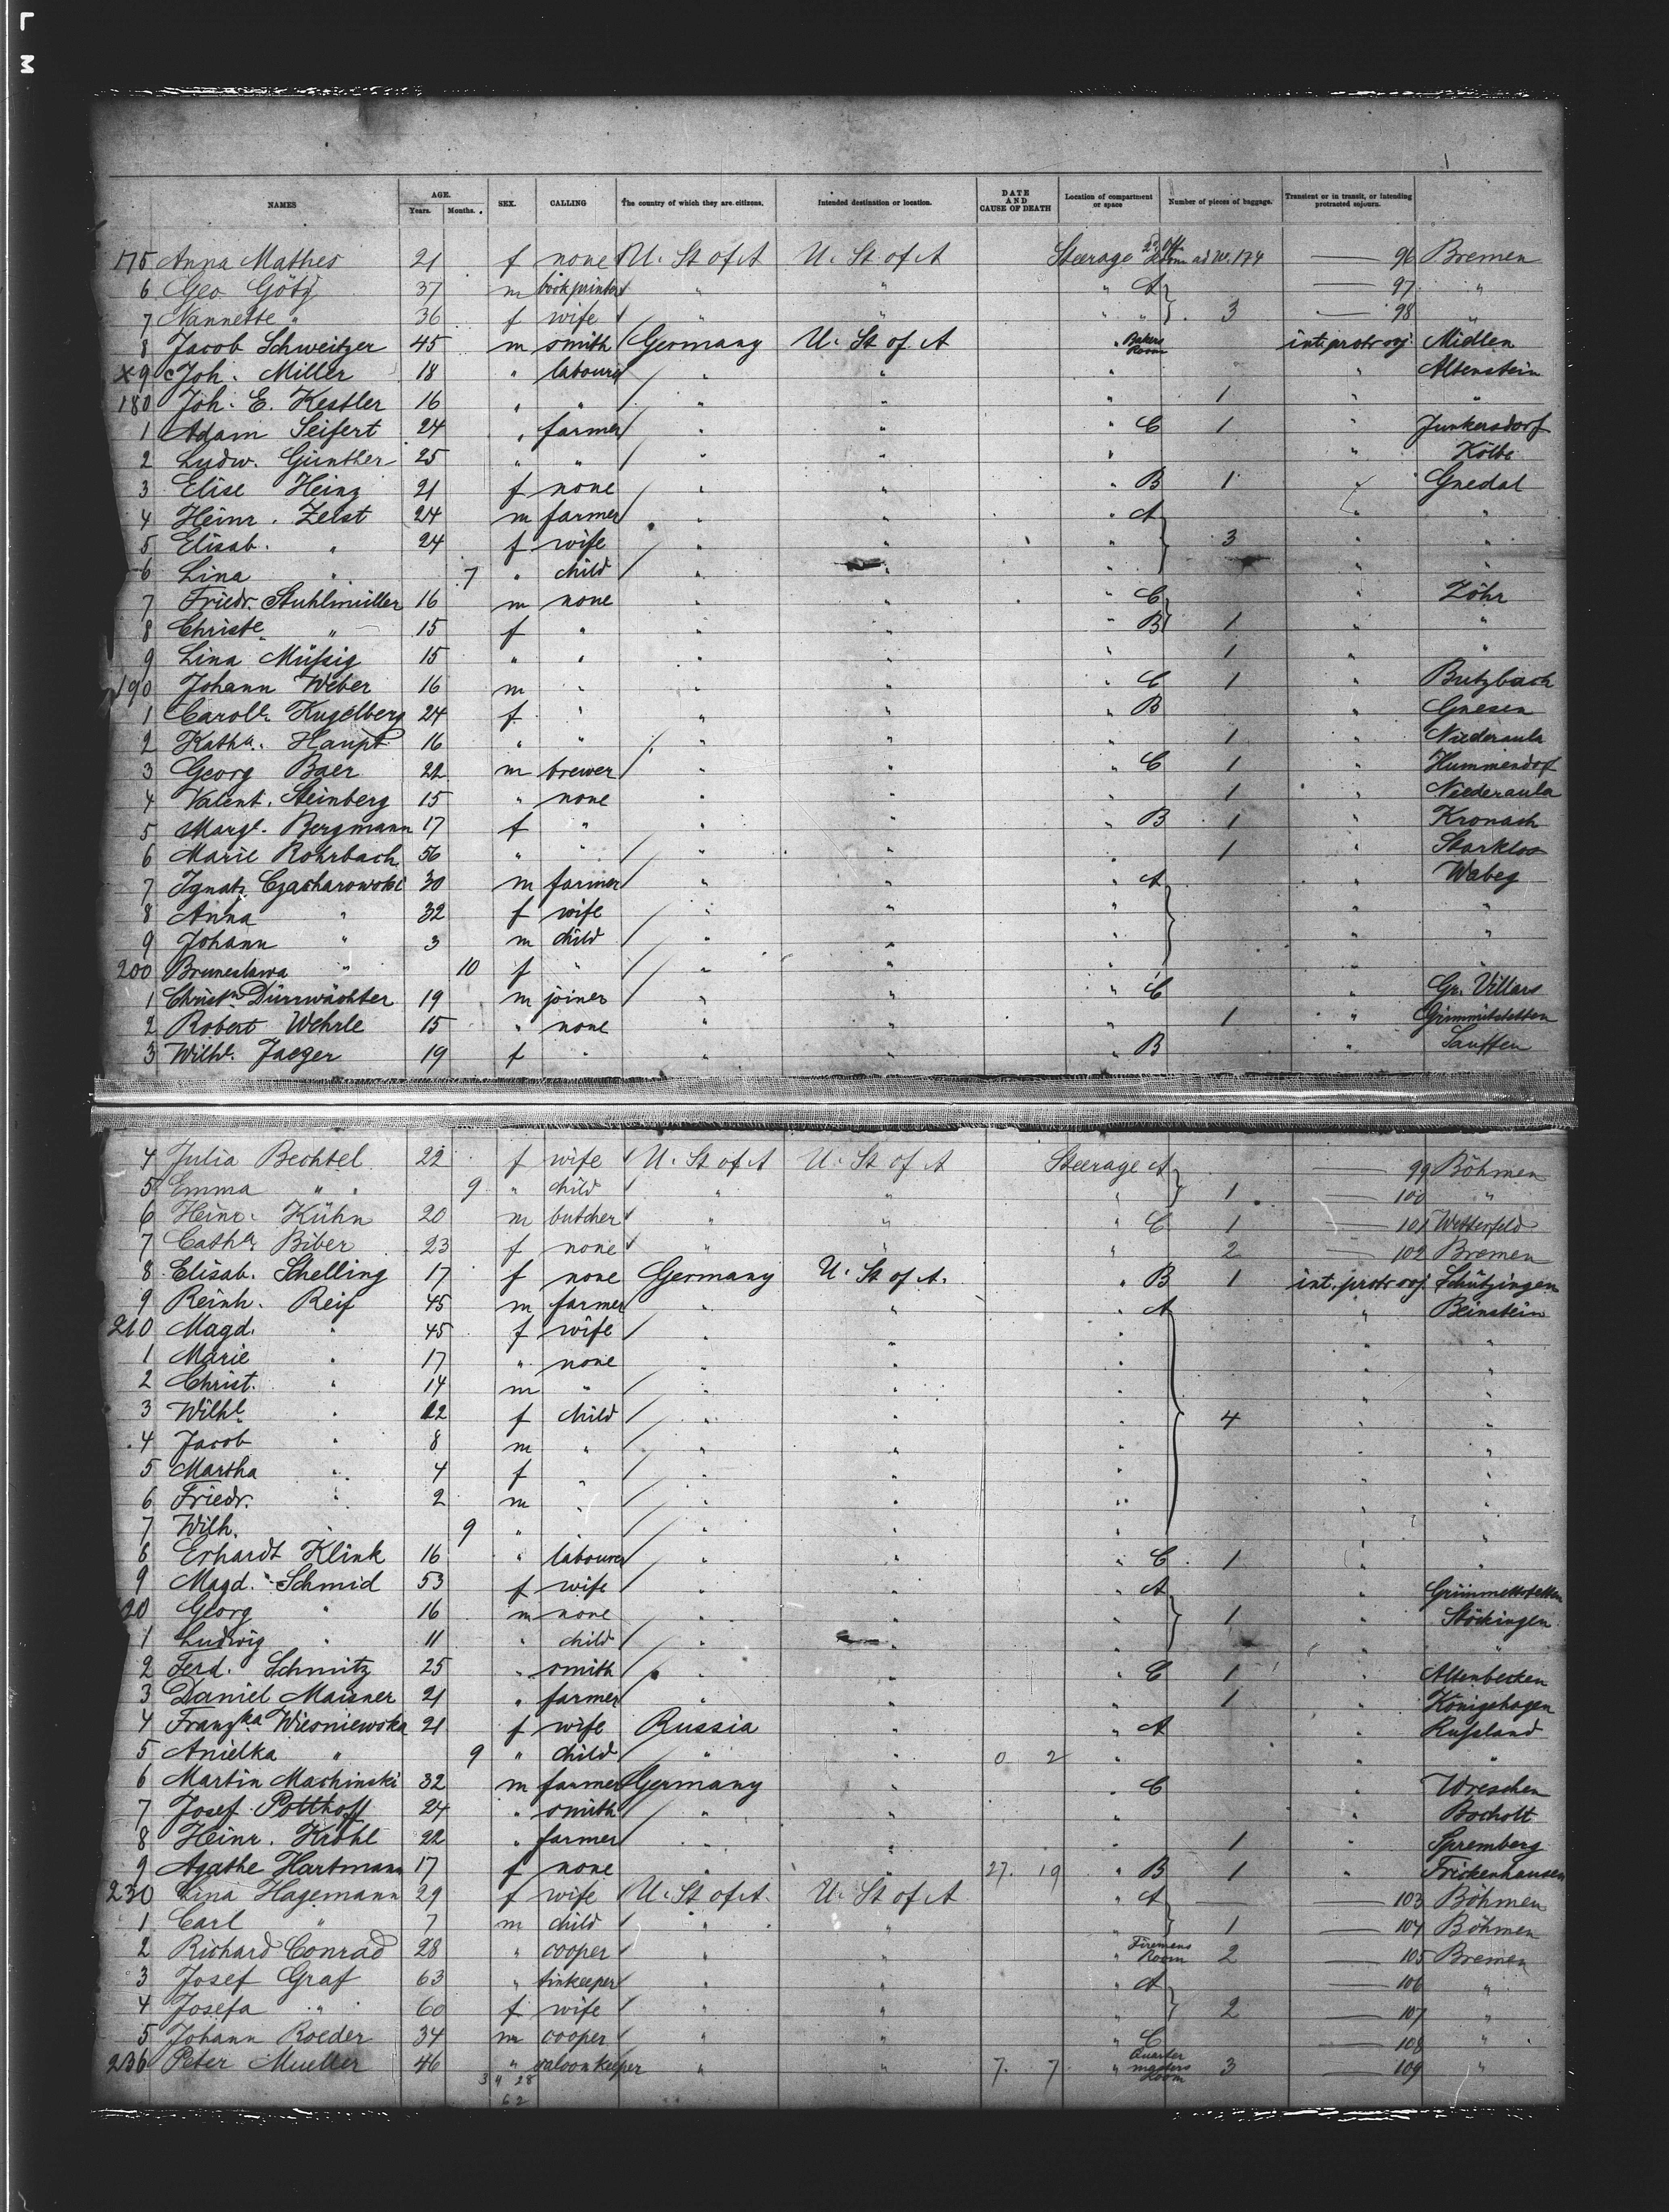 L M
NAMES AGE. Years. Months. SEX. CALLING The country of which they are citizens. Intended destination or location. DATE AND CAUSE OF DEATH Location of compartment or space Number of pieces of baggage. Transient or in transit, or intending protracted sojourn.
175 Anna Mathes 21 f none U. St of A U. St. of A Steerage ad No. 174 — 96 Bremen
6 Geo Götz 37 m bookprinter " " " A — 97 "
7 Nannette " 36 f wife " " " " 3 — 98 "
8 Jacob Schweitzer 45 m smith Germany U. St of A " Bakers Room int. protr soj. Midlen
x9 Joh. Miller 18 " labourer " " " " Altenstein
180 Joh. E. Kestler 16 " " " " " 1 " "
1 Adam Seifert 24 " farmer " " " C 1 " Junkersdorf
2 Ludw. Günther 25 " " " " " " Kölbe
3 Elise Heinz 21 f none " " " B 1 " Gnedal
4 Heinr. Zelst 24 m farmer " " " A " "
5 Elisab. " 24 f wife " " " 3 " "
6 Lina " 7 " child " " " " "
7 Friedr. Stuhlmüller 16 m none " " " C " Zöhr
8 Christe " 15 f " " " " B 1 " "
9 Lina Müssig 15 " " " " " 1 " "
190 Johann Weber 16 m " " " " C 1 " Butzbach
1 Carole Kugelberg 24 f " " " " B " Gnesen
2 Katha. Haupt 16 " " " " " 1 " Niederaula
3 Georg Baer 22 m brewer " " " C 1 " Hummendorf
4 Valent. Steinberg 15 " none " " " 1 " Niederaula
5 Margt. Bergmann 17 f " " " " B 1 " Kronach
6 Marie Rohrbach 56 " " " " " 1 " Starklos
7 Ignatz Czacharowski 30 m farmer " " " A " Wabeg
8 Anna " 32 f wife " " " " "
9 Johann " 3 m child " " " " "
200 Bruneslawa " 10 f " " " " " "
1 Christn Dürrwächter 19 m joiner " " " C " Gr. Villars
2 Robert Wehrle 15 " none " " " 1 " Grimmitstetten
3 Wilhe. Jaeger 19 f " " " " B " Lauffen
4 Julia Bechtel 22 f wife U. St of A U. St of A Steerage A — 99 Böhmen
5 Emma " 9 " child " " " 1 — 100 "
6 Heinr. Kühn 20 m butcher " " " C 1 — 101 Wetterfeld
7 Catha Biber 23 f none " " " 2 — 102 Bremen
8 Elisab. Schelling 17 f none Germany U. St of A. " B 1 int. protr soj. Schützingen
9 Reinh. Reif 45 m farmer " " " A " Beinstein
210 Magd. " 45 f wife " " " " "
1 Marie " 17 " none " " " " "
2 Christ. " 14 m " " " " " "
3 Wilhe " 12 f child " " " 4 " "
4 Jacob " 8 m " " " " " "
5 Martha " 4 f " " " " " "
6 Friedr. " 2 m " " " " " "
7 Wilh. " 9 " " " " " " "
8 Erhardt Klink 16 " labourer " " " C 1 " "
9 Magd. Schmid 53 f wife " " " A " Grimmettstetten
20 Georg " 16 m none " " " 1 " Stöckingen
1 Ludwig " 11 " child " " " " "
2 Ferd. Schmitz 25 " smith " " " C 1 " Altenbecken
3 Daniel Maisner 21 " farmer " " " 1 " Königshagen
4 Franzka Wisniewska 21 f wife Russia " " A " Russland
5 Anielka " 9 " child " " 0 2 " " "
6 Martin Machinski 32 m farmer Germany " " C " Wreschen
7 Josef Potthoff 24 " smith " " " " Bocholt
8 Heinr. Krohl 22 " farmer " " " 1 " Spremberg
9 Agathe Hartmann 17 f none " " 27. 19 " B 1 " Frickenhausen
230 Lina Hagemann 29 f wife U. St of A. U. St of A " A — 103 Böhmen
1 Carl " 7 m child " " " 1 — 104 Böhmen
2 Richard Conrad 28 " cooper " " " Firemens Room 2 — 105 Bremen
3 Josef Graf 63 " " " " A — 106 "
4 Josefa " 60 f wife " " " 2 — 107 "
5 Johann Roeder 34 m cooper " " " C — 108 "
236 Peter Mueller 46 " saloonkeeper " " 7. 7 " Quarter masters Room 3 — 109 "
3 4 28
62